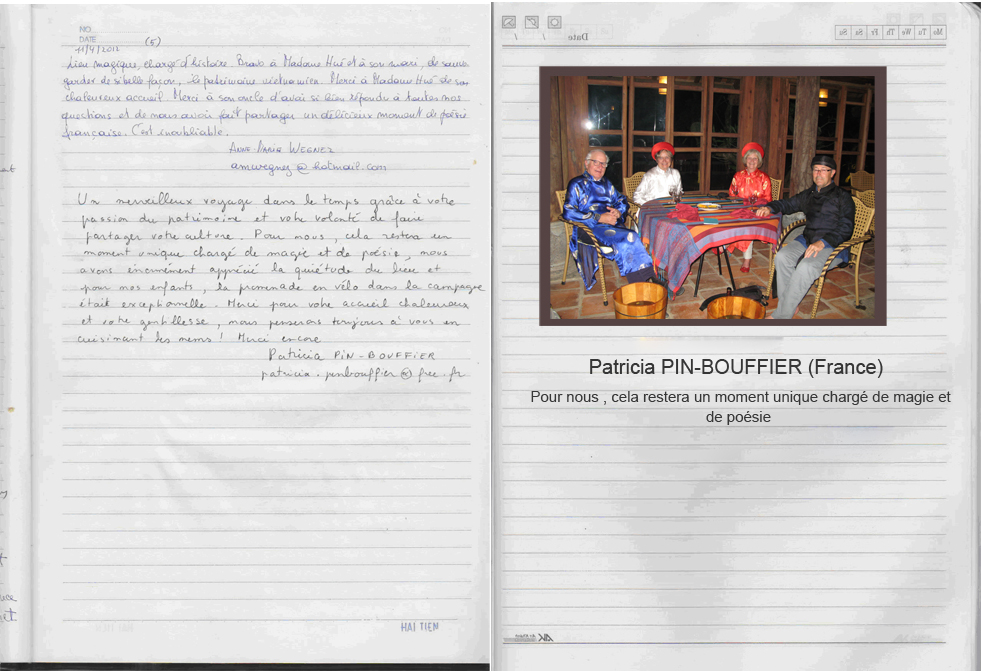 NO
DATE
11/4/2012
(5)
Lieu magique, chargé d'histoire. Bravo à Madame Hué et à son mari, de sauve
garder de si belle façon, le patrimoine vietnamien. Merci à Madame Hué de son
chaleureux accueil. Merci à son oncle d'avoir si bien répondu à toutes nos
questions et de nous avoir fait partager un délicieux moment de poésie
française. C'est inoubliable.
ANNE-MARIE WEGNEZ
amwegnez@hotmail.com
Un merveilleux voyage dans le temps grâce à votre
passion du patrimoine et votre volonté de faire
partager votre culture. Pour nous, cela restera un
moment unique chargé de magie et de poésie, nous
avons énormément apprécié la quiétude du lieu et
pour nos enfants, la promenade en vélo dans la campagne
était exceptionnelle. Merci pour votre accueil chaleureux
et votre gentillesse, nous penserons toujours à vous en
cuisinant les nems! Merci encore
Patricia PIN-BOUFFIER
patricia.pinbouffier@free.fr
HAI TIEN
Date / /
Mo Tu We Th Fr Sa Su
Patricia PIN-BOUFFIER (France)
Pour nous , cela restera un moment unique chargé de magie et
de poésie